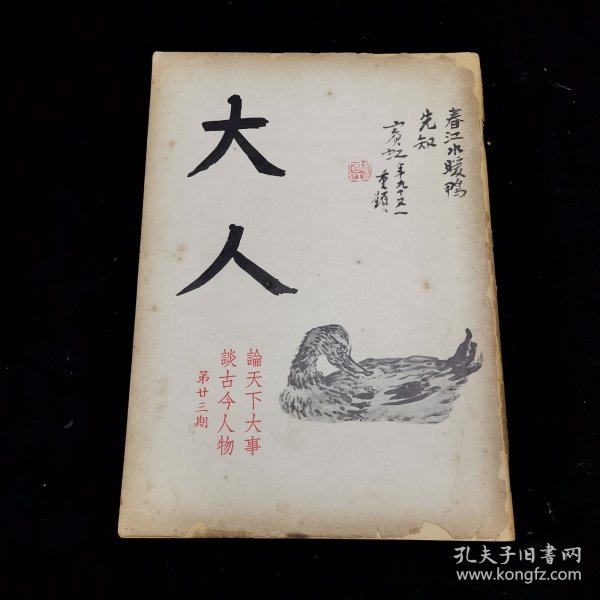 大人
春江水暖鴨
先知
賓虹年九十又一
重題
論天下大事
談古今人物
第廿三期
孔夫子旧書网
www.kongfz.com